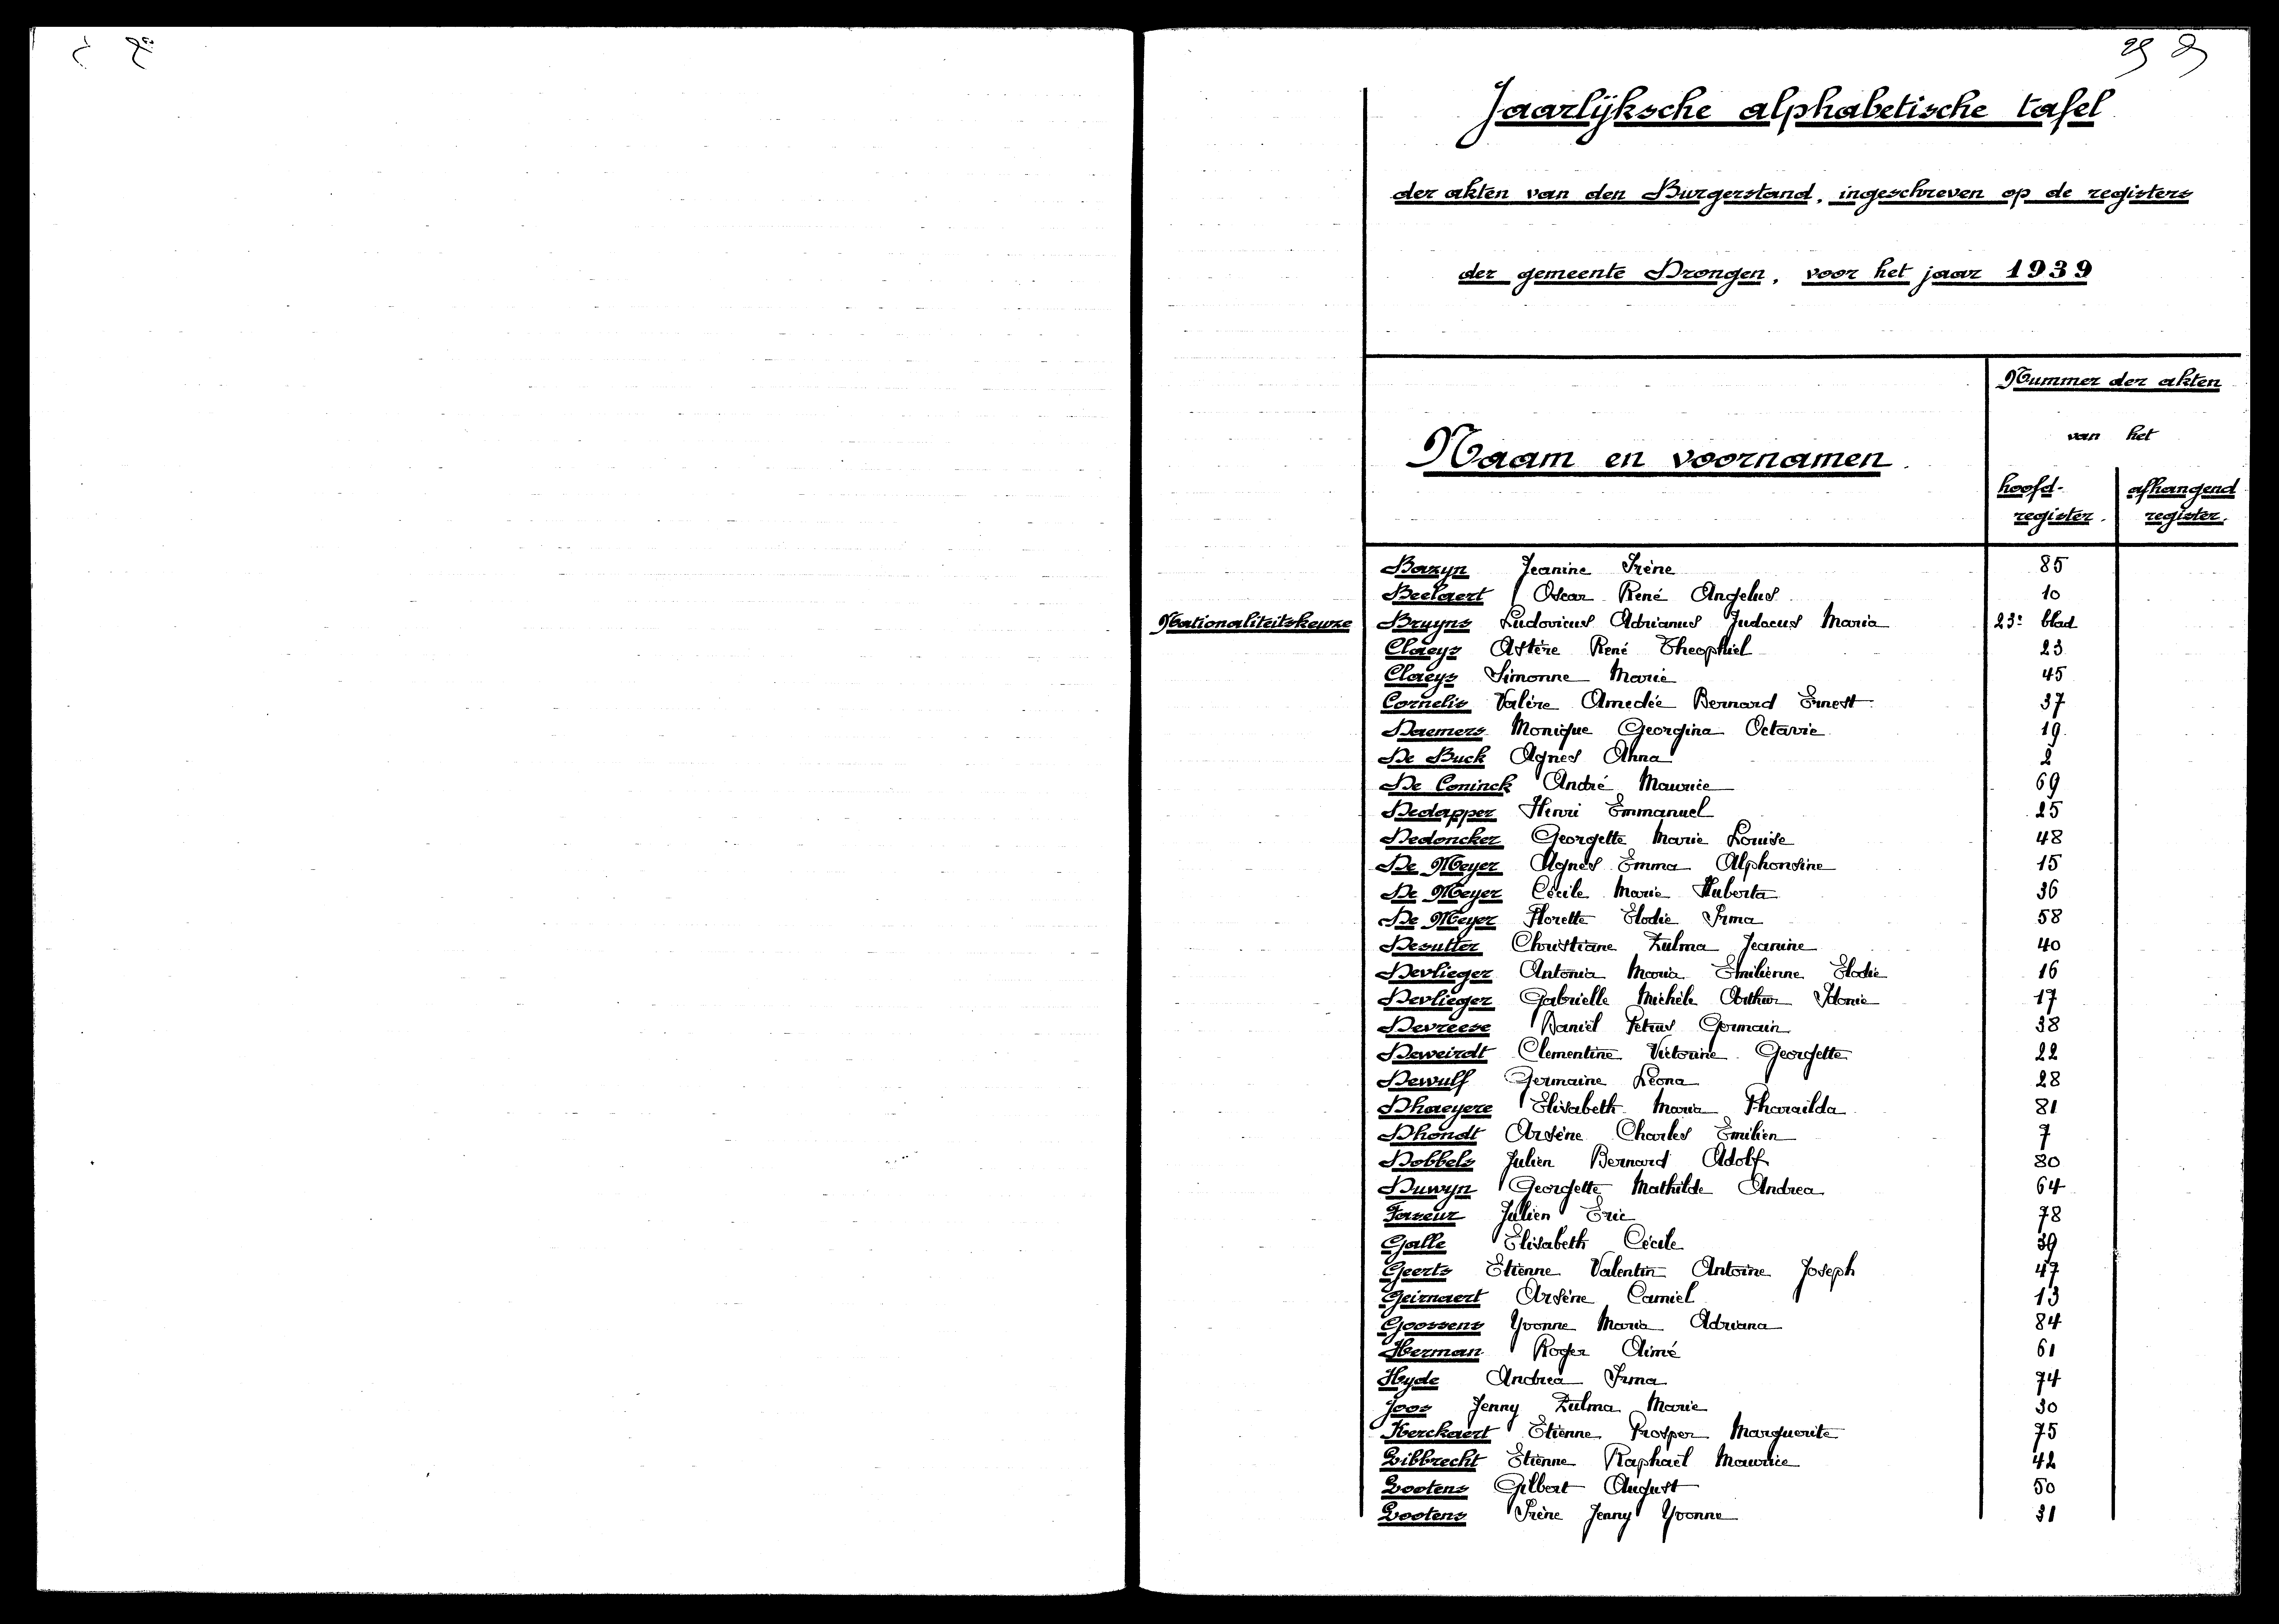 Jaarlijksche alphabetische tafel
der akten van den Burgerstand, ingeschreven op de registers
der gemeente Drongen, voor het jaar 1939
Nummer der akten
van het
Naam en voornamen
hoofd-register. afhangend register.
Bazyn Jeanine Irène 85
Beelaert Oscar René Angelus 10
Nationaliteitskeuze Bruyns Ludovicus Adrianus Judocus Maria 23e blad
Claeys Astère René Theophiel 23
Claeys Simonne Marie 45
Cornelis Valère Amedée Bernard Ernest 37
Daemers Monique Georgina Octavie 19
De Buck Agnes Anna 2
De Coninck André Maurice 69
Dedapper Henri Emmanuel 25
Dedoncker Georgette Marie Louise 48
De Meyer Agnes Emma Alphonsine 15
De Meyer Cécile Marie Huberta 36
De Meyer Florette Elodie Irma 58
Desutter Christiane Zulma Jeanine 40
Devlieger Antonia Maria Emilienne Elodie 16
Devlieger Gabrielle Michèle Arthur Idonie 17
Devreese Daniël Petrus Germain 38
Deweirdt Clementine Victorine Georgette 22
Dewulf Germaine Leona 28
Dhaeyere Elisabeth Maria Pharaïlda 81
Dhondt Arsène Charles Emilien 7
Dobbels Julien Bernard Adolf 80
Duwyn Georgette Mathilde Andrea 64
Faseur Julien Eric 78
Galle Elisabeth Cécile 39
Geerts Etienne Valentin Antoine Joseph 47
Geirnaert Arsène Camiel 13
Goossens Yvonne Maria Adriana 84
Herman Roger Aimé 61
Hyde Andrea Irma 74
Joos Jenny Zulma Marie 30
Kerckaert Etienne Prosper Marguerite 75
Libbrecht Etienne Raphaël Maurice 42
Lootens Gilbert August 50
Lootens Irène Jenny Yvonne 31